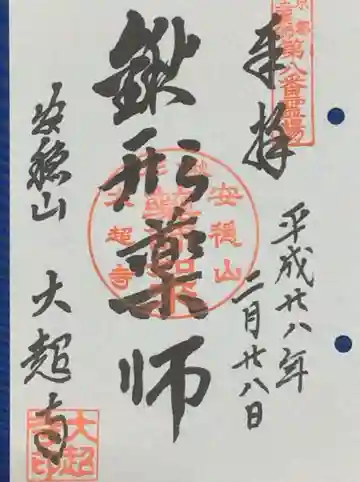 奉拝
第八番霊場
平成廿八年
二月廿八日
鍬形薬師
安穏山
大超寺
安穏山 大超寺
大超寺印